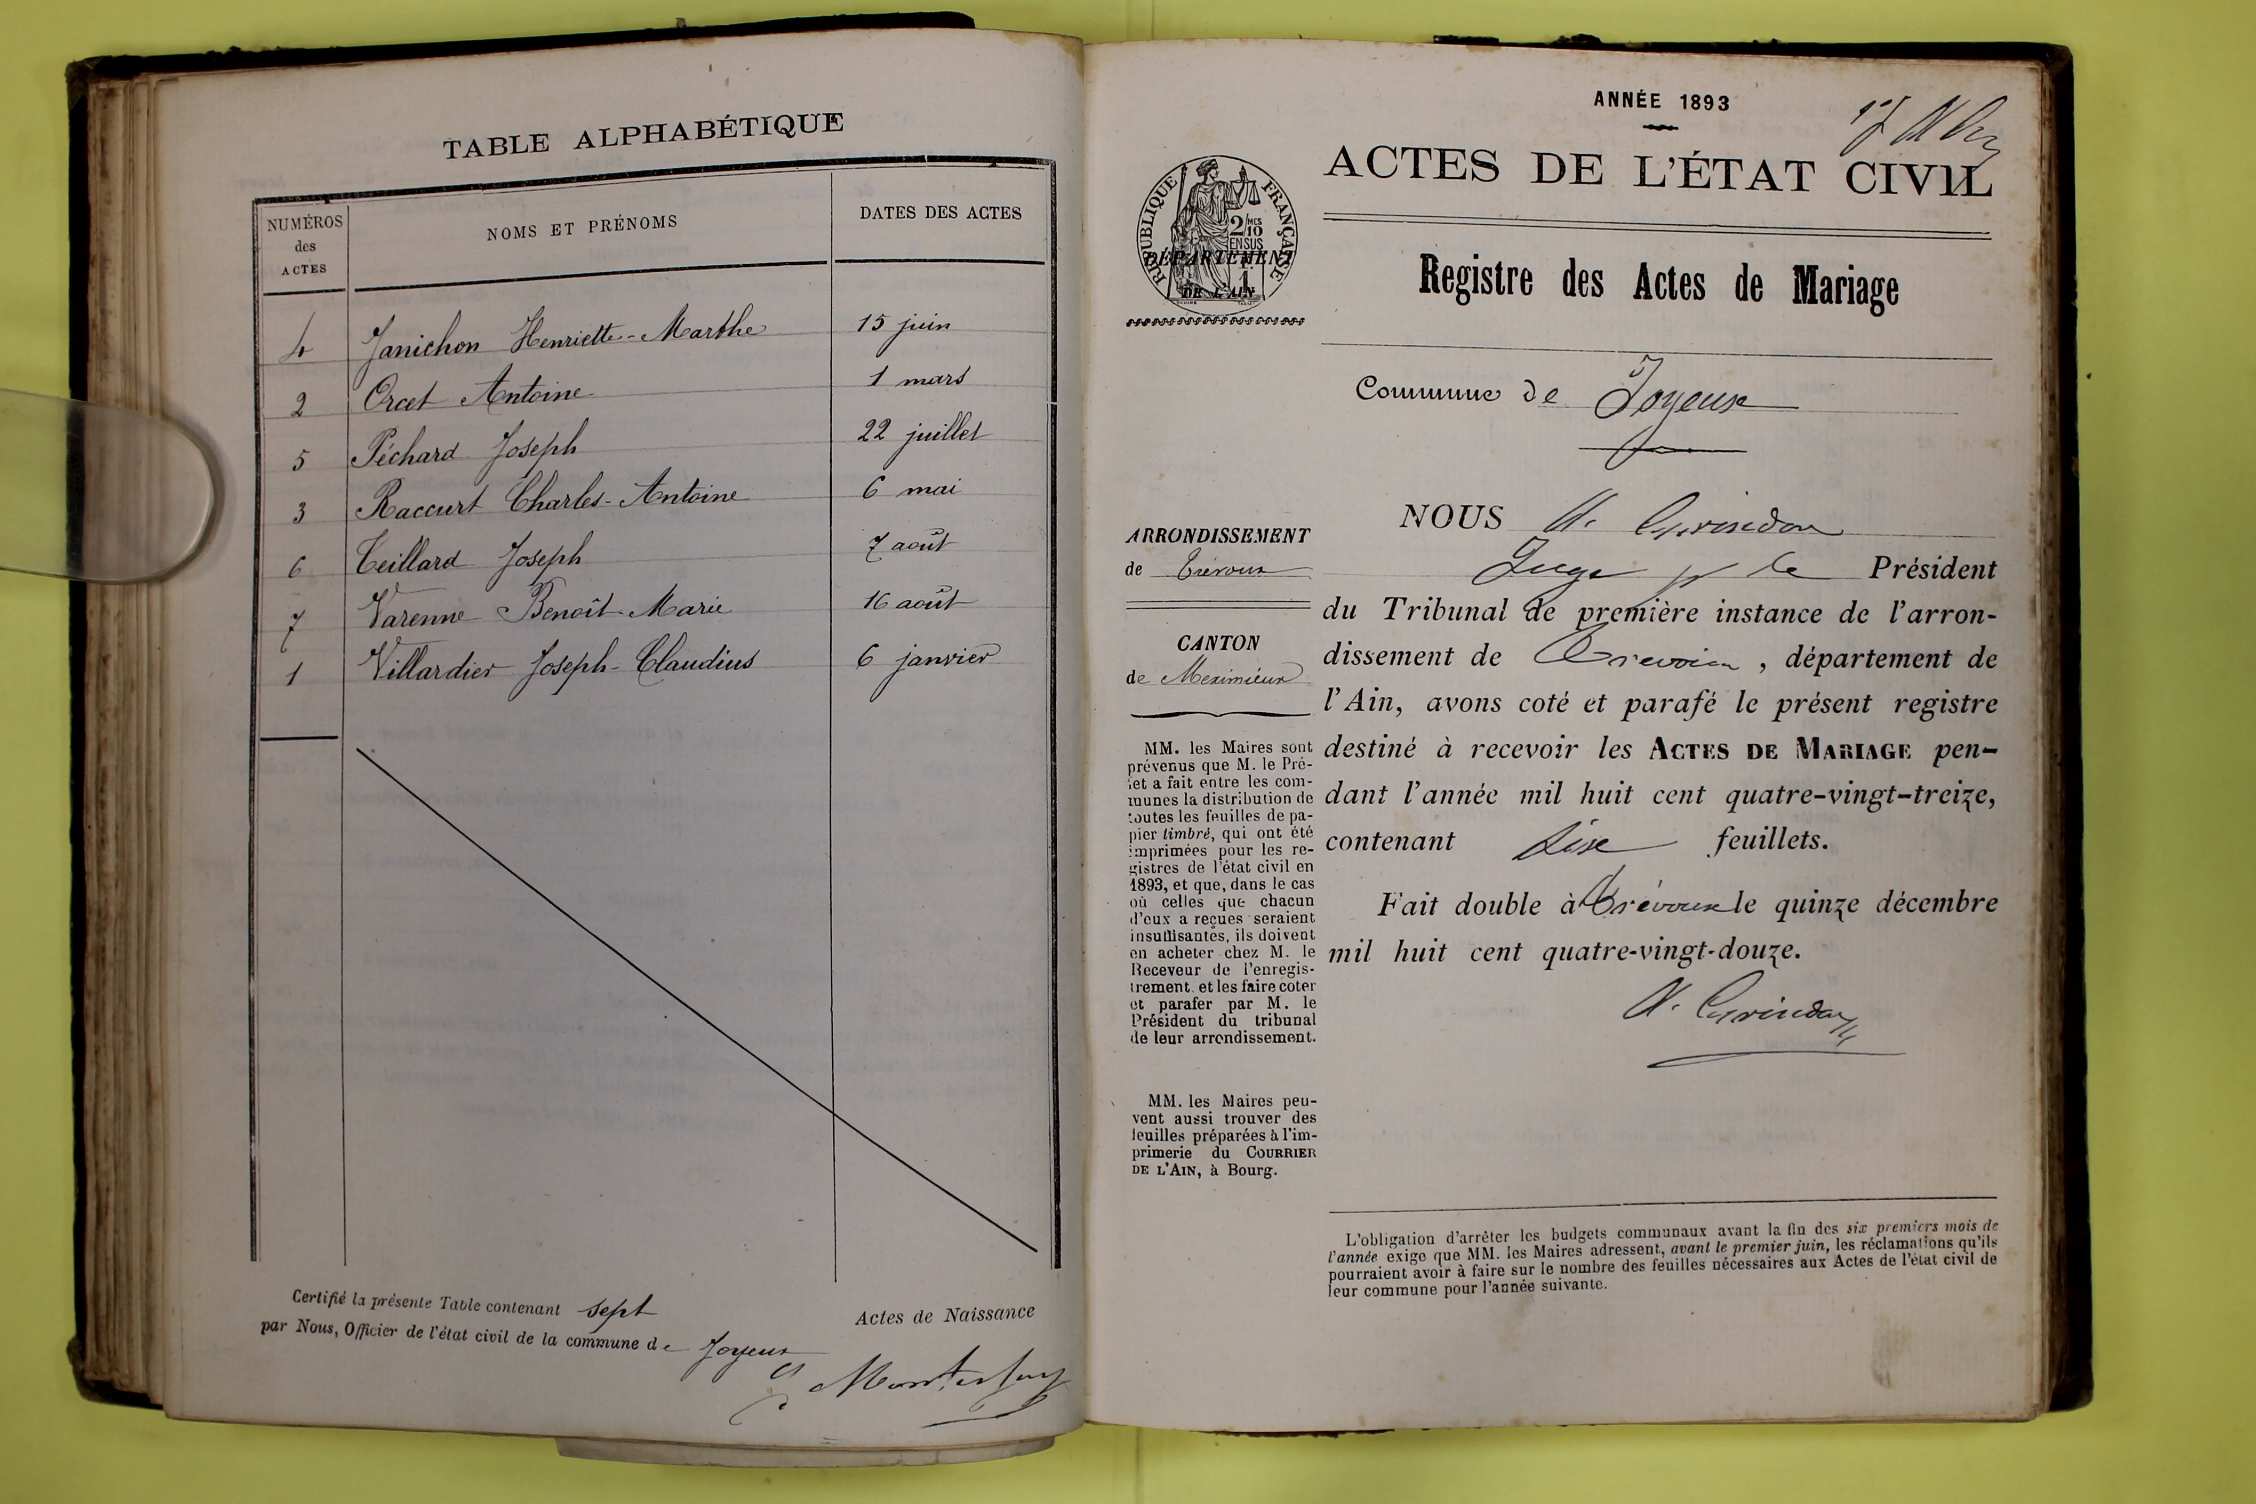 TABLE ALPHABÉTIQUE
NUMÉROS des ACTES NOMS ET PRÉNOMS DATES DES ACTES
4 Janichon Henriette-Marthe 15 juin
2 Orcet Antoine 1 mars
5 Péchard Joseph 22 juillet
3 Raccurt Charles-Antoine 6 mai
6 Teillard Joseph 7 août
7 Varenne Benoît-Marie 16 août
1 Villardier Joseph-Claudius 6 janvier
Certifié la présente Table contenant sept Actes de Naissance
par Nous, Officier de l'état civil de la commune de Joyeux
ANNÉE 1893
ACTES DE L'ÉTAT CIVIL
RÉPUBLIQUE FRANÇAISE
2/10 MES
EN SUS
DÉPARTEMENT
DE L'AIN
Registre des Actes de Mariage
Commune de Joyeux
ARRONDISSEMENT
de Trévoux
CANTON
de Meximieux
MM. les Maires sont
prévenus que M. le Pré-
fet a fait entre les com-
munes la distribution de
toutes les feuilles de pa-
pier timbré, qui ont été
imprimées pour les re-
gistres de l'état civil en
1893, et que, dans le cas
où celles que chacun
d'eux a reçues seraient
insuffisantes, ils doivent
en acheter chez M. le
Receveur de l'enregis-
trement et les faire coter
et parafer par M. le
Président du tribunal
de leur arrondissement.
MM. les Maires peu-
vent aussi trouver des
feuilles préparées à l'im-
primerie du COURRIER
DE L'AIN, à Bourg.
NOUS
Juge pr le Président
du Tribunal de première instance de l'arron-
dissement de Trévoux, département de
l'Ain, avons coté et parafé le présent registre
destiné à recevoir les ACTES DE MARIAGE pen-
dant l'année mil huit cent quatre-vingt-treize,
contenant six feuillets.
Fait double à Trévoux le quinze décembre
mil huit cent quatre-vingt-douze.
L'obligation d'arrêter les budgets communaux avant la fin des six premiers mois de
l'année exige que MM. les Maires adressent, avant le premier juin, les réclamations qu'ils
pourraient avoir à faire sur le nombre des feuilles nécessaires aux Actes de l'état civil de
leur commune pour l'année suivante.